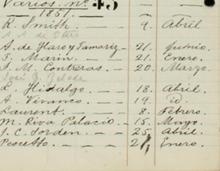 Varios. nº 45
1851.
R. Smith. - 9 Abril
A. de Haro y Tamariz - 21. Junio.
T. Marin. - 21. Enero.
J. M. Contreras - 20. Marzo.
L. Hidalgo - 18. Abril.
A. Vivanco - 19. id.
Laurent. - 8. Febrero
M. Riva Palacio. - 15. Mayo.
J. C. Gorden - 25. Abril.
Pesetto. - Enero.